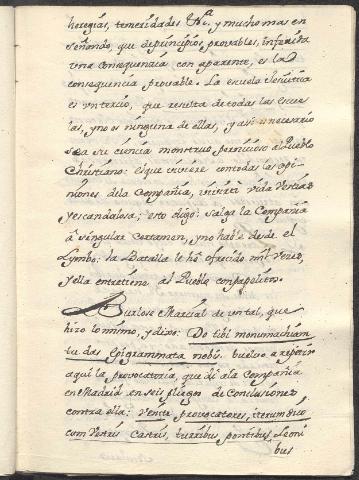 heregias, temeridades &ª. y mucho mas en
señando, que de principios provables, inferida
una consequencia con aparente, es la
consequencia provable. La escuela Jesuitica
es un tercio, que resulta de todas las escue
las, y no es ninguna de ellas, y asi es necesario
sea su ciencia monstruo pernicioso al Pueblo
Christiano: el que viviere con todas las opi-
niones de la Compañia, vivirà vida
y escandalosa; esto digo: salga la Compañia
à singular certamen, y no hable desde el
Lymbo: la Batalla le hè ofrecido mil vezes,
y ella entretiene al Pueblo con papelitos.
Burlose Marcial de un tal, que
hizo lo mismo, y dixo: Do tibi monumachiam
tu das Epigrammata nobis. buelvo a repetir
aqui la provocatoria, que dí a la Compañia
en Madrid en seis pliegos de Conclusiones
contra ella: Venite provocatores, iterum dico
cum vestris castris, turribus, pontibus,
bus